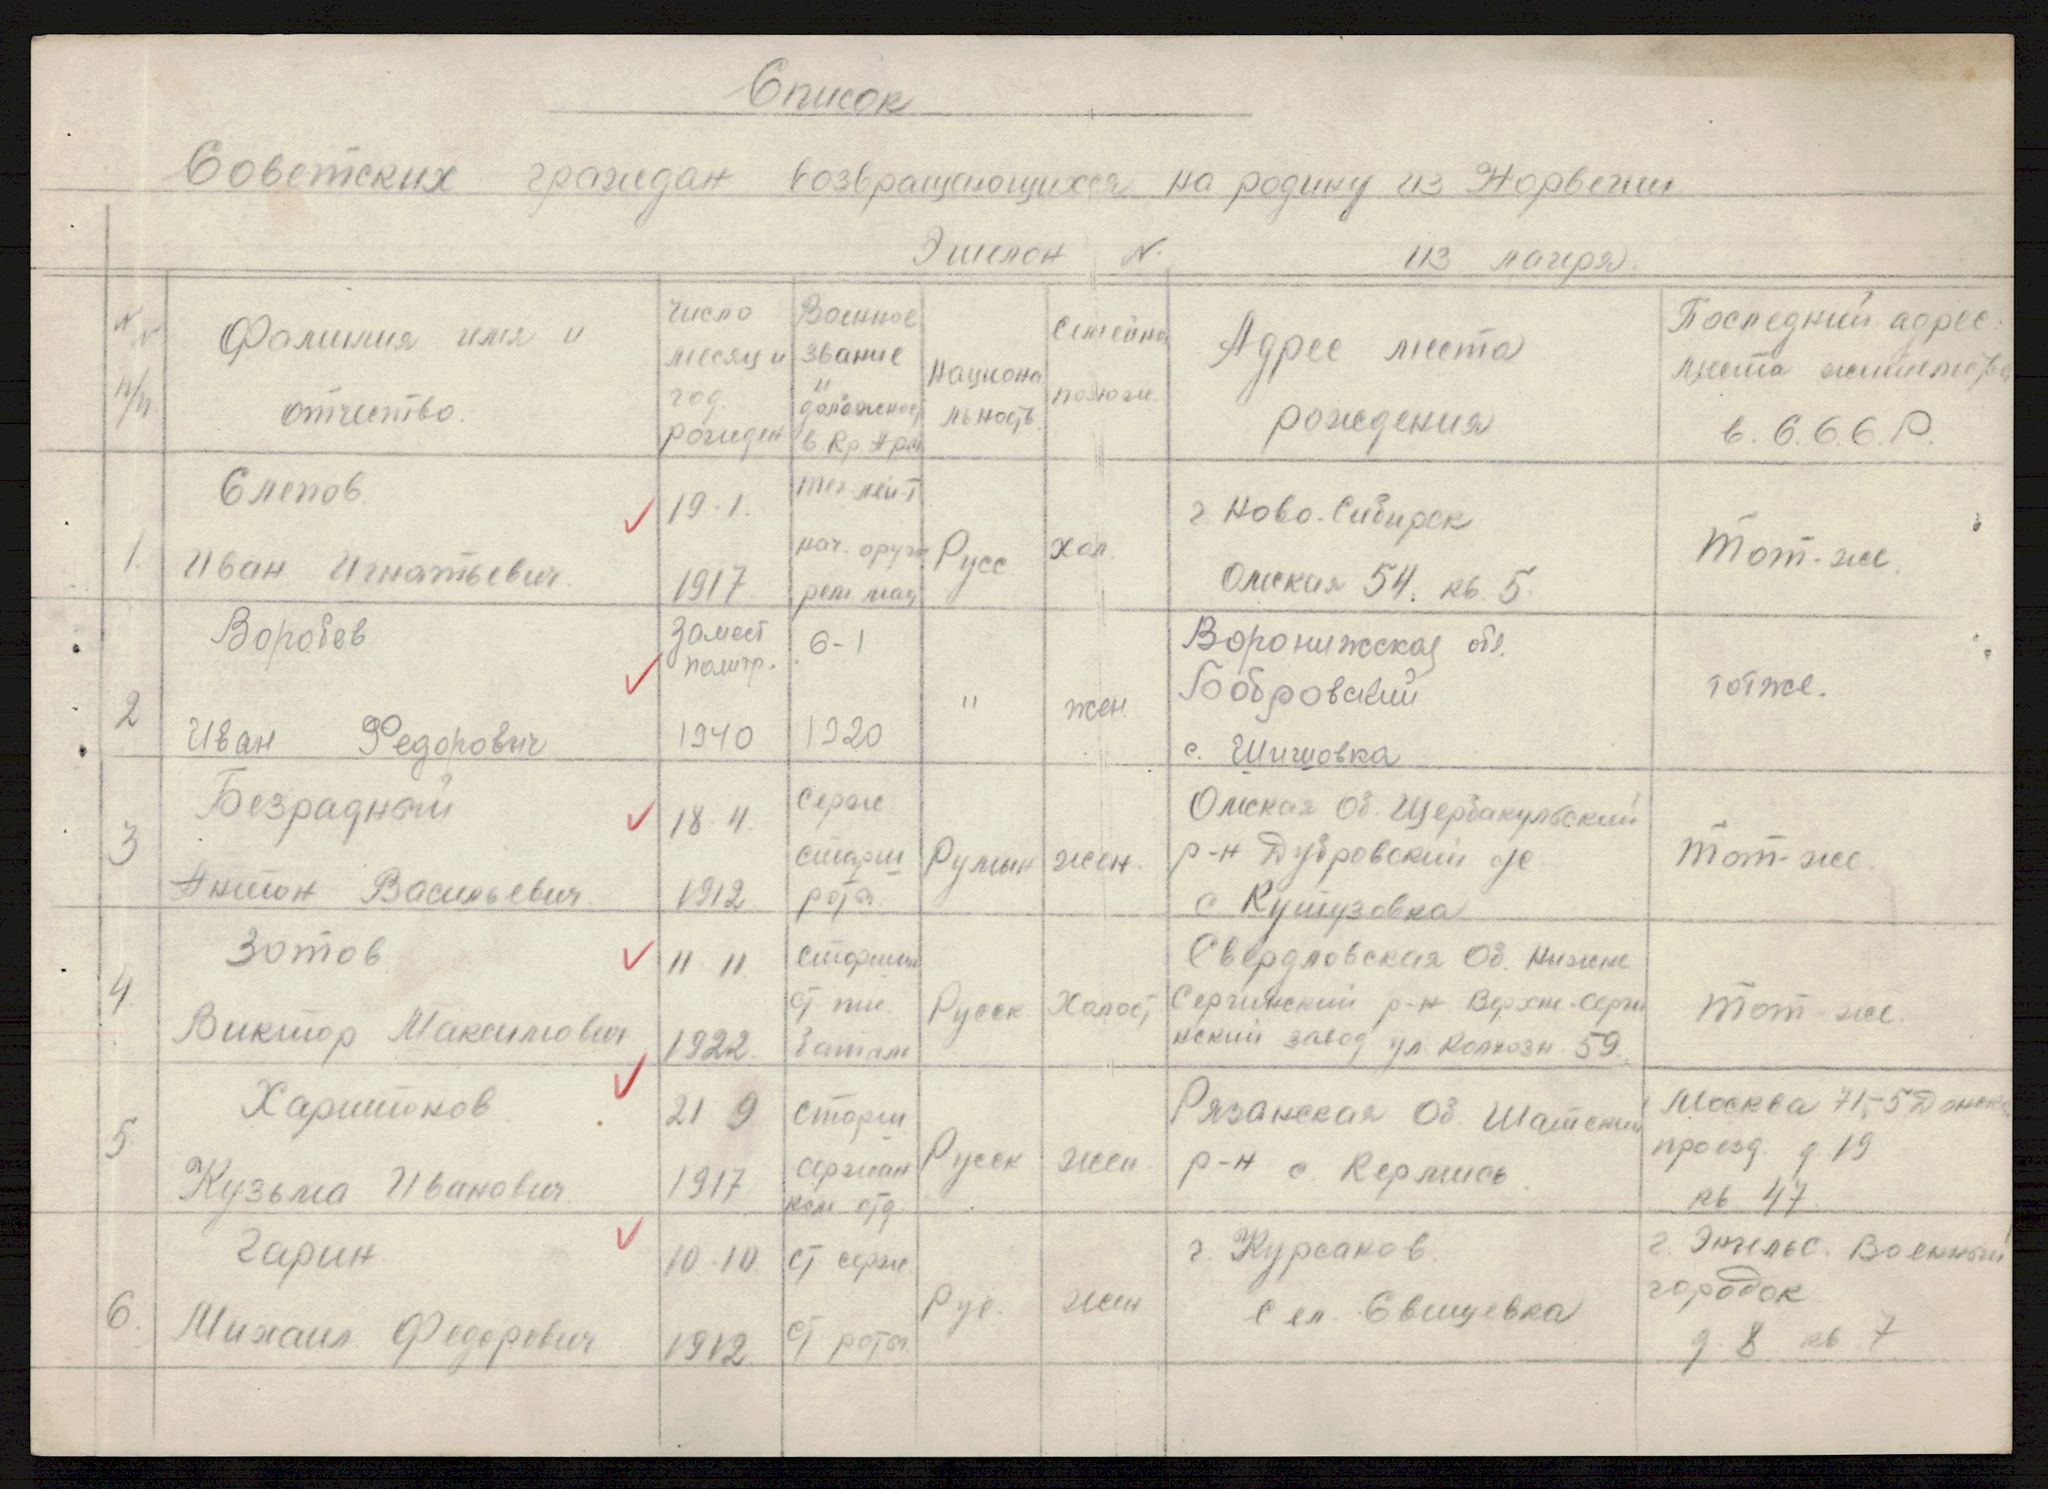 Список
Советских граждан возвращающихся на родину из Норвегии
Эшелон N. из лагеря.
N N п/п
Фамилия имя и отчество.
число месяц и год рожден
Военное звание и должност в Кр. Арм
Национальность.
Семейно полож.
Адрес места рождения
Последний адрес места жительства в. С.С.С.Р.
1. Слепов Иван Игнатьевич.
19-1. 1917
тех лейт нач. оруж рем
Русс
хол.
г. Ново-Сибирск
Омская 54. кв. 5.
Тот-же.
2 Воробев Иван Федорович
Замест политр. 1940
6-1 1920
"
жен.
Воронижская обл.
Бобровский
с. Шишовка
тотже.
3 Безрадный Антон Васильевич
18 4. 1912
Серж. старш роты.
Румын
жен.
Омская Об. Щербакульский
р-н Дубровский с/с
с Кутузовка
Тот-же.
4. Зотов Виктор Максимович
11 11. 1922.
старшин ст пис. батал
Русск
Холост
Свердловская Об. Нижне
Сергинский р-н Верхне-Серги
нский завод ул Колхозн 59.
Тот-же.
5 Харитонов Кузьма Иванович.
21 9 1917
старш сержан ком отд.
Русск
жен.
Рязанская Об. Шатский
р-н с. Кермись.
Москва 71,-5 Донско
проезд. д. 19
кв. 47.
6. Гарин Михаил Федорович
10-10. 1912
ст серж ст роты.
Рус.
жен
г. Курсаков.
Сел. Свищевка
г. Энгельс. Военный
городок
д. 8 кв 7